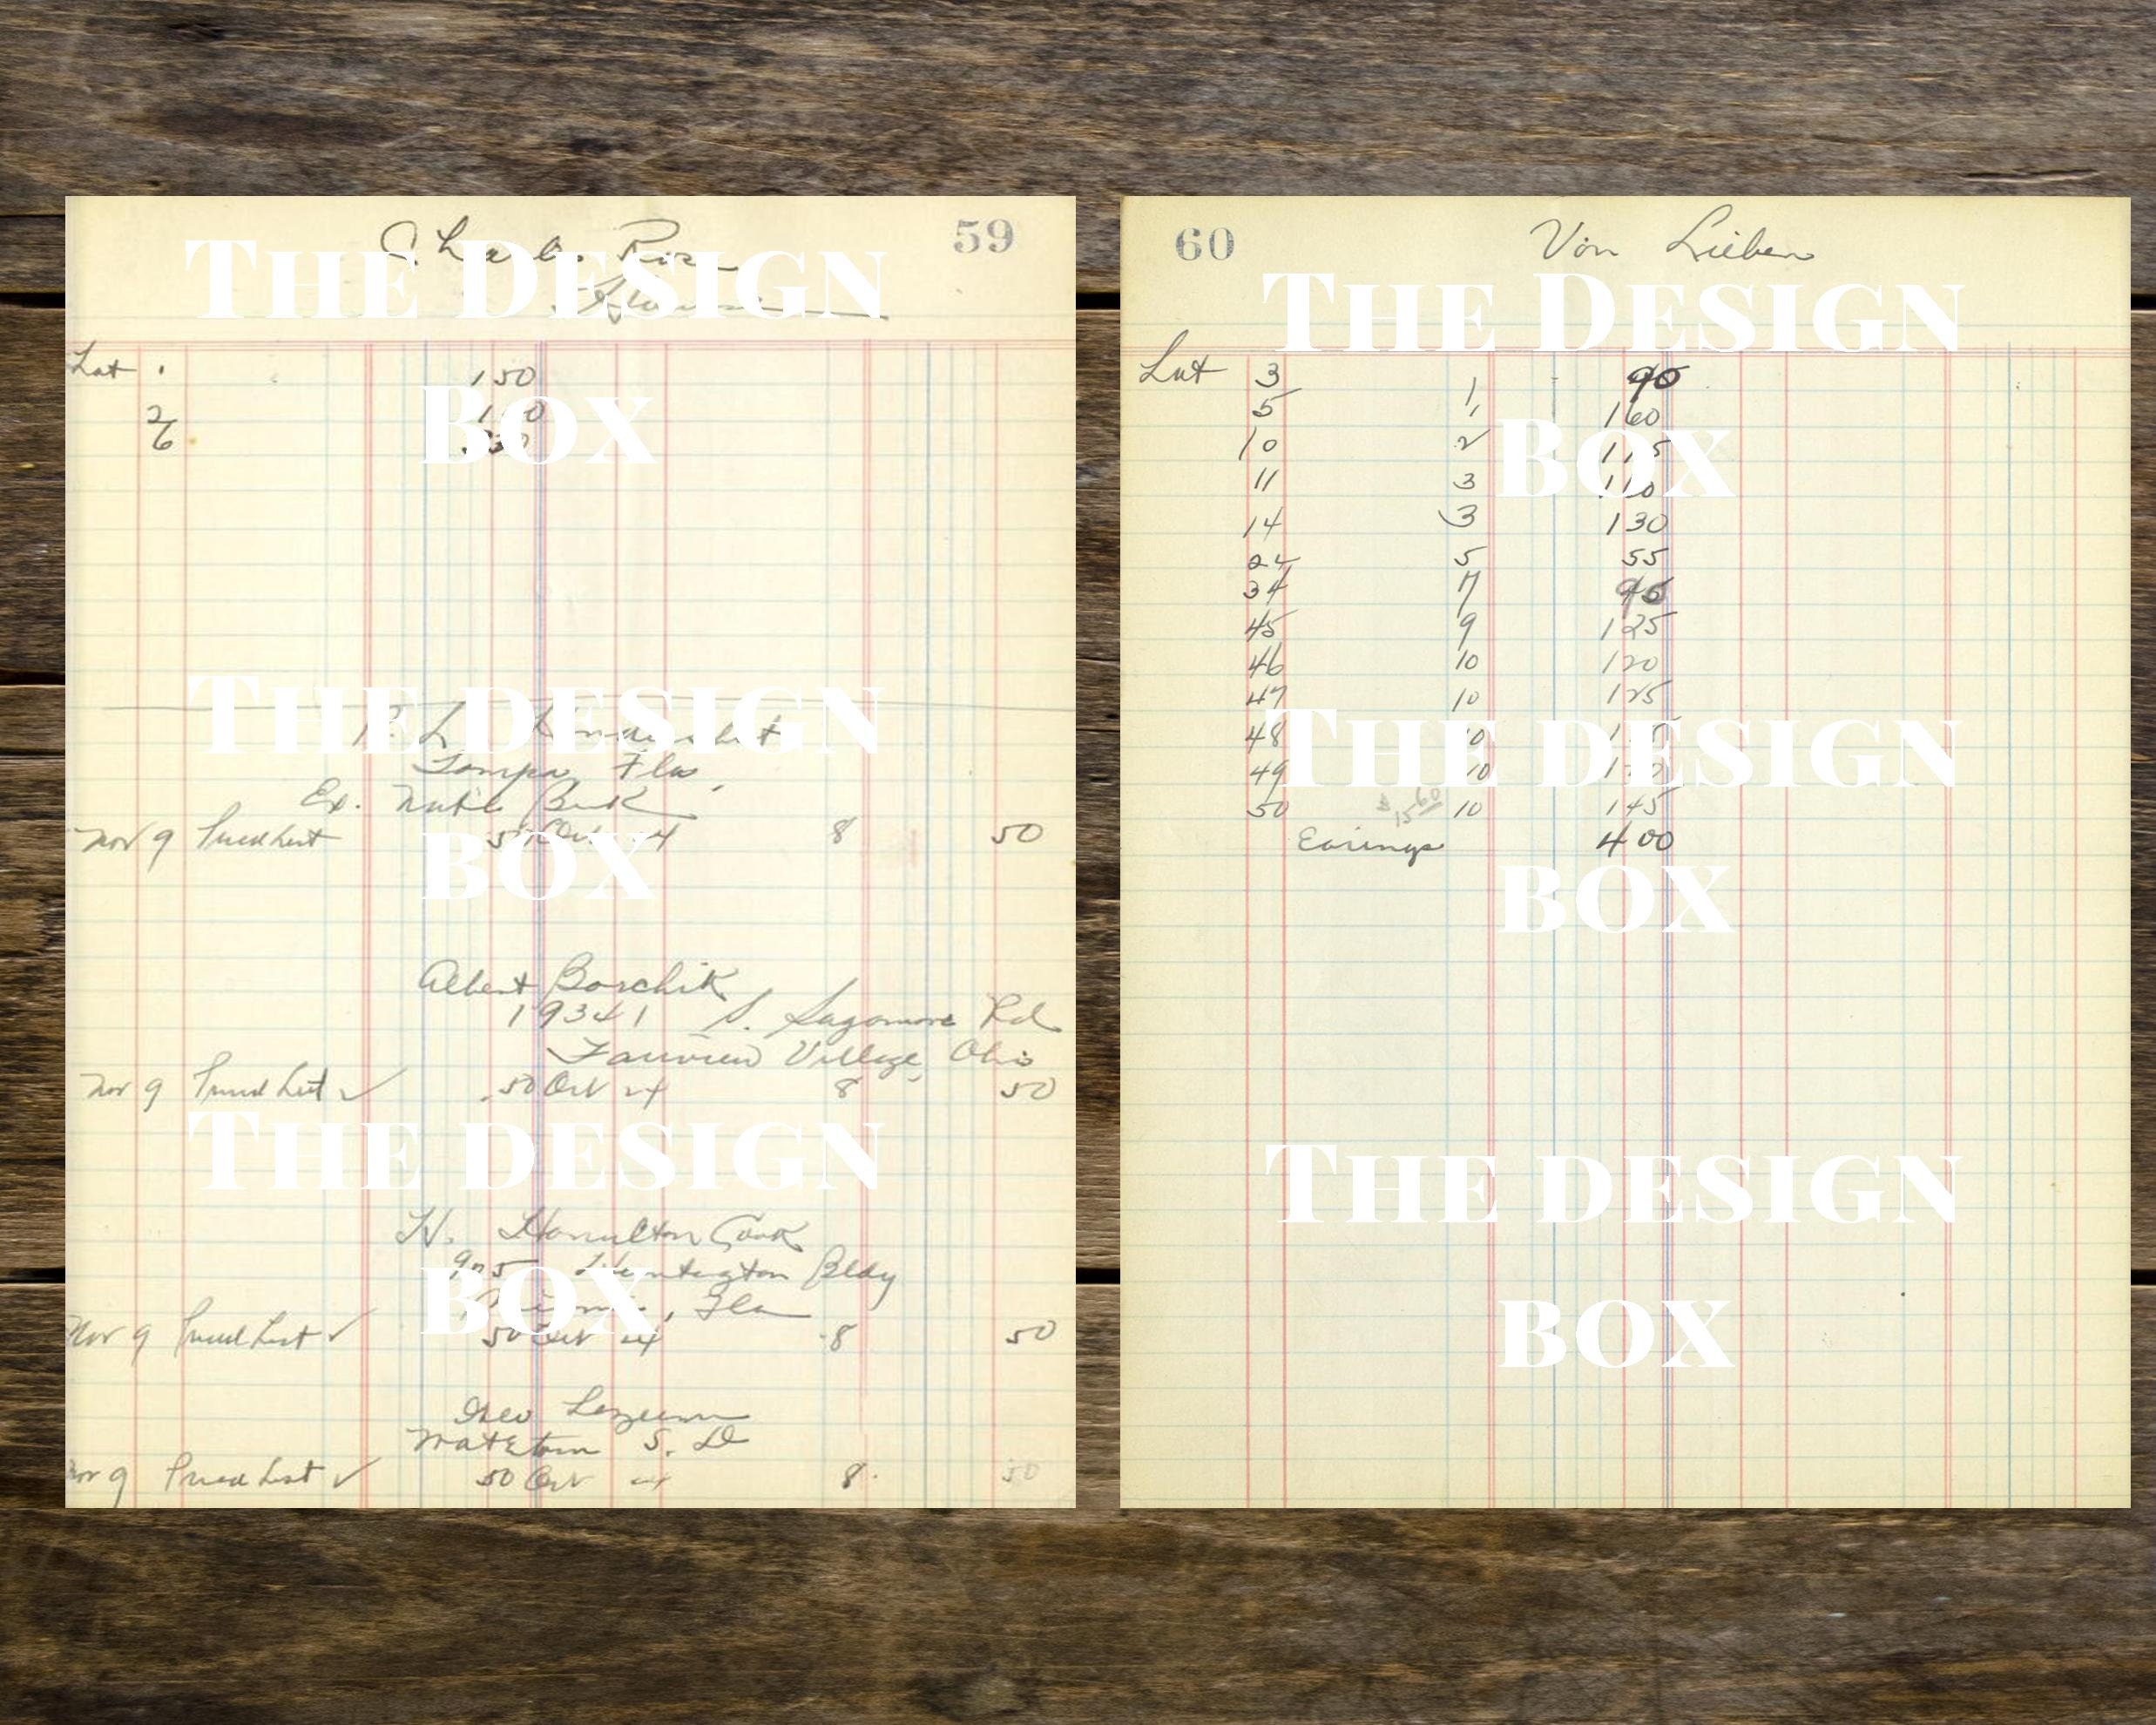 59
Lot
150
2
6
Tampa, Fla,
Ex. Natl Bank
Nov 9 Priced List 50 Oct 24 8 50
Albert Borchik
19341 S. Sagamore Rd
Fairview Village, Ohio
Nov 9 Priced List ✓ .50 Oct 24 8 50
H. Hamilton Cook
905 Huntington Bldg
Miami, Fla
Nov 9 Priced List ✓ 50 Oct 24 8 50
Geo
S. D
Nov 9 Priced List ✓ 50 Oct 24 8 50
THE DESIGN
BOX
THE DESIGN
BOX
THE DESIGN
BOX
60 Von Lieben
Lot 3 1 90
5 1 160
10 2 115
11 3 110
14 3 130
24 5 55
34 7
45 9 125
46 10 120
47 10 125
48 10
49 10
50 10 145
Earings 400
THE DESIGN
BOX
THE DESIGN
BOX
THE DESIGN
BOX